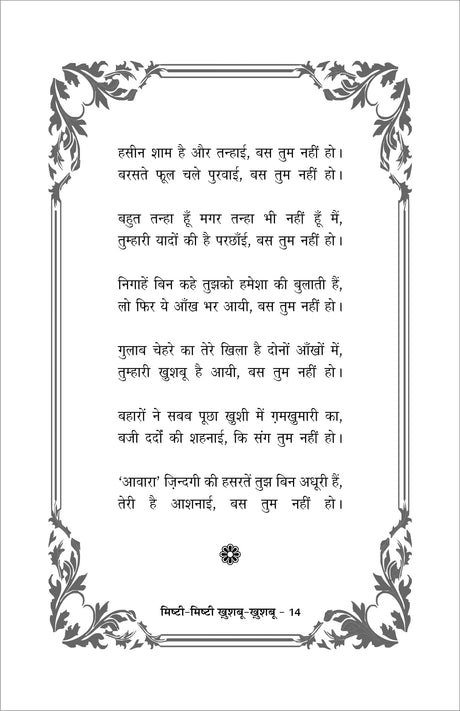 हसीन शाम है और तन्हाई, बस तुम नहीं हो।
बरसते फूल चले पुरवाई, बस तुम नहीं हो।
बहुत तन्हा हूँ मगर तन्हा भी नहीं हूँ मैं,
तुम्हारी यादों की है परछाँई, बस तुम नहीं हो।
निगाहें बिन कहे तुझको हमेशा की बुलाती हैं,
लो फिर ये आँख भर आयी, बस तुम नहीं हो।
गुलाब चेहरे का तेरे खिला है दोनों आँखों में,
तुम्हारी खुशबू है आयी, बस तुम नहीं हो।
बहारों ने सबब पूछा खुशी में ग़मखुमारी का,
बजी दर्दों की शहनाई, कि संग तुम नहीं हो।
‘आवारा’ ज़िन्दगी की हसरतें तुझ बिन अधूरी हैं,
तेरी है आशनाई, बस तुम नहीं हो।
मिष्टी-मिष्टी ख़ुशबू-ख़ुशबू - 14